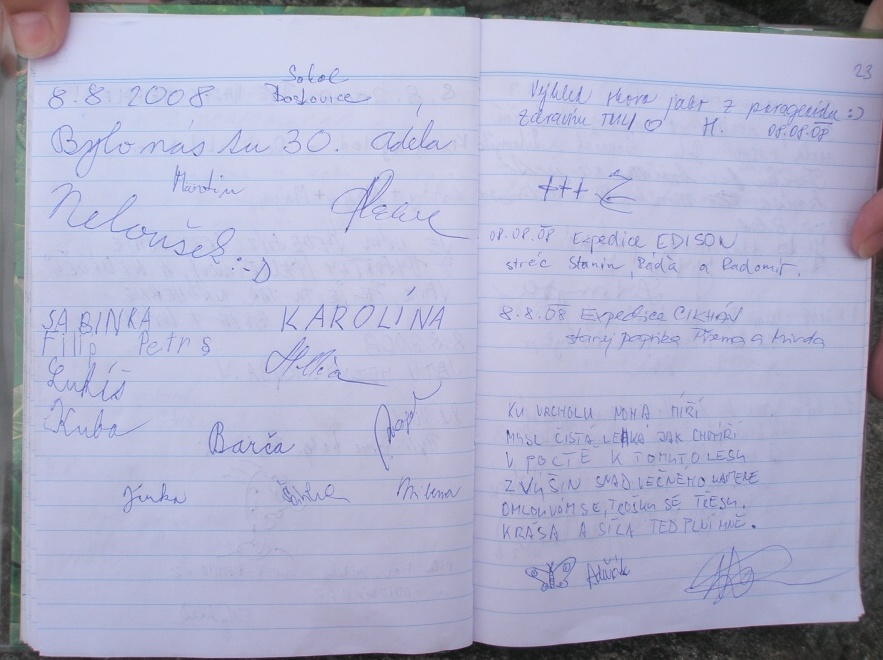 Sokol
8.8 2008 Boskovice
Bylo nás tu 30. Adéla
Martin
Neloušek :-D
SABINKA KAROLÍNA
Filip Petr š
Lukáš
Kuba
Barča
Jirka Šárka Milena
23
Výhled shora jako z paraglidu :)
Zdravím H. 08.08.08
+++
08.08.08 Expedice EDISON
stréc Stanin, Ráďa a Radomír.
8.8.08 Expedice CIKHÁN
starej paprika Přema a
KU VRCHOLU NOHA MÍŘÍ
MYSL ČISTÁ LEHKÁ JAK CHMÍŘÍ
V POCTĚ K TOMUTO LESU
Z VÝŠIN SNAD VĚČNÉHO KAMENE
OMLOUVÁM SE, TROŠKU SE TŘESU.
KRÁSA A SÍLA TEĎ PLNÍ MNĚ.